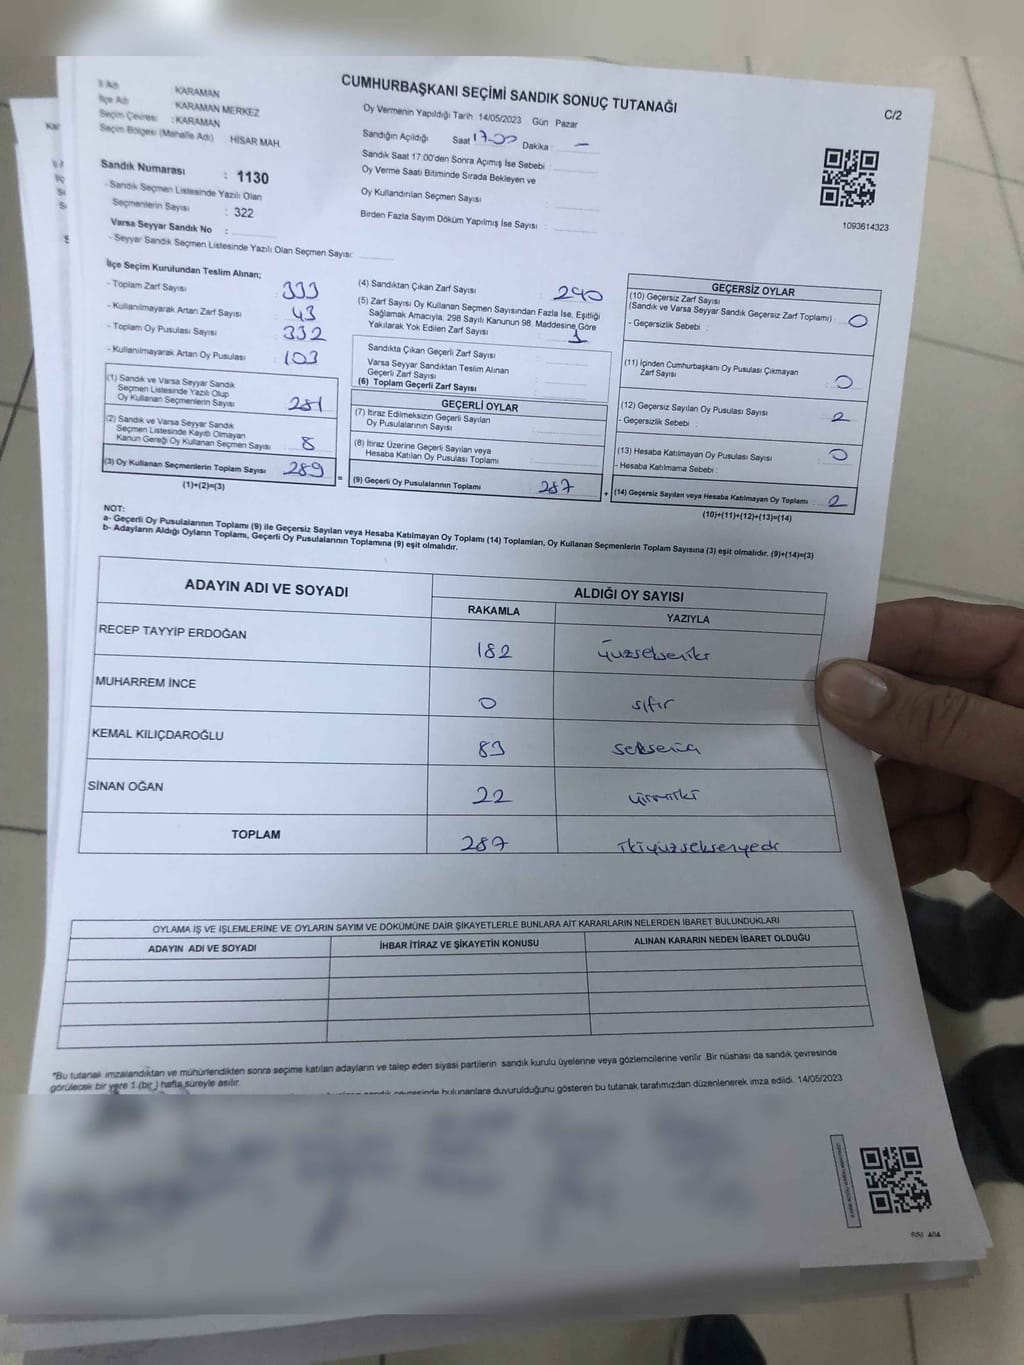 CUMHURBAŞKANI SEÇİMİ SANDIK SONUÇ TUTANAĞI
C/2
İl Adı : KARAMAN
İlçe Adı : KARAMAN MERKEZ
Seçim Çevresi : KARAMAN
Seçim Bölgesi (Mahalle Adı) : HİSAR MAH.
Sandık Numarası : 1130
- Sandık Seçmen Listesinde Yazılı Olan
Seçmenlerin Sayısı : 322
Varsa Seyyar Sandık No :
- Seyyar Sandık Seçmen Listesinde Yazılı Olan Seçmen Sayısı:
Oy Vermenin Yapıldığı Tarih :14/05/2023 Gün Pazar
Sandığın Açıldığı Saat 17.00 Dakika : -
Sandık Saat 17.00'den Sonra Açımış İse Sebebi :
Oy Verme Saati Bitiminde Sırada Bekleyen ve
Oy Kullandırılan Seçmen Sayısı :
Birden Fazla Sayım Döküm Yapılmış İse Sayısı :
1093614323
İlçe Seçim Kurulundan Teslim Alınan;
- Toplam Zarf Sayısı : 333
- Kullanılmayarak Artan Zarf Sayısı : 43
- Toplam Oy Pusulası Sayısı : 332
- Kullanılmayarak Artan Oy Pusulası : 103
(1) Sandık ve Varsa Seyyar Sandık
Seçmen Listesinde Yazılı Olup
Oy Kullanan Seçmenlerin Sayısı : 281
(2) Sandık ve Varsa Seyyar Sandık
Seçmen Listesinde Kayıtlı Olmayan
Kanun Gereği Oy Kullanan Seçmen Sayısı : 8
(3) Oy Kullanan Seçmenlerin Toplam Sayısı : 289
(1)+(2)=(3)
(4) Sandıktan Çıkan Zarf Sayısı : 290
(5) Zarf Sayısı Oy Kullanan Seçmen Sayısından Fazla İse, Eşitliği
Sağlamak Amacıyla; 298 Sayılı Kanunun 98. Maddesine Göre
Yakılarak Yok Edilen Zarf Sayısı : 1
Sandıkta Çıkan Geçerli Zarf Sayısı :
Varsa Seyyar Sandıktan Teslim Alınan
Geçerli Zarf Sayısı :
(6) Toplam Geçerli Zarf Sayısı :
GEÇERLİ OYLAR
(7) İtiraz Edilmeksizin Geçerli Sayılan
Oy Pusulalarının Sayısı :
(8) İtiraz Üzerine Geçerli Sayılan veya
Hesaba Katılan Oy Pusulası Toplamı :
= (9) Geçerli Oy Pusulalarının Toplamı : 287
GEÇERSİZ OYLAR
(10) Geçersiz Zarf Sayısı
(Sandık ve Varsa Seyyar Sandık Geçersiz Zarf Toplamı) : 0
- Geçersizlik Sebebi :
(11) İçinden Cumhurbaşkanı Oy Pusulası Çıkmayan
Zarf Sayısı : 0
(12) Geçersiz Sayılan Oy Pusulası Sayısı : 2
- Geçersizlik Sebebi :
(13) Hesaba Katılmayan Oy Pusulası Sayısı : 0
- Hesaba Katılmama Sebebi :
+ (14) Geçersiz Sayılan veya Hesaba Katılmayan Oy Toplamı : 2
(10)+(11)+(12)+(13)=(14)
NOT:
a- Geçerli Oy Pusulalarının Toplamı (9) ile Geçersiz Sayılan veya Hesaba Katılmayan Oy Toplamı (14) Toplamları, Oy Kullanan Seçmenlerin Toplam Sayısına (3) eşit olmalıdır. (9)+(14)=(3)
b- Adayların Aldığı Oyların Toplamı, Geçerli Oy Pusulalarının Toplamına (9) eşit olmalıdır.
ADAYIN ADI VE SOYADI
ALDIĞI OY SAYISI
RAKAMLA YAZIYLA
RECEP TAYYİP ERDOĞAN 182 yüzsekseniki
MUHARREM İNCE 0 sıfır
KEMAL KILIÇDAROĞLU 83 seksenüç
SİNAN OĞAN 22 yirmiiki
TOPLAM 287 ikiyüzseksenyedi
OYLAMA İŞ VE İŞLEMLERİNE VE OYLARIN SAYIM VE DÖKÜMÜNE DAİR ŞİKAYETLERLE BUNLARA AİT KARARLARIN NELERDEN İBARET BULUNDUKLARI
ADAYIN ADI VE SOYADI İHBAR İTİRAZ VE ŞİKAYETİN KONUSU ALINAN KARARIN NEDEN İBARET OLDUĞU
*Bu tutanak imzalandıktan ve mühürlendikten sonra seçime katılan adayların ve talep eden siyasi partilerin sandık kurulu üyelerine veya gözlemcilerine verilir .Bir nüshası da sandık çevresinde
görülecek bir yere 1 (bir ) hafta süreyle asılır.
sandık çevresinde bulunanlara duyurulduğunu gösteren bu tutanak tarafımızdan düzenlenerek imza edildi. 14/05/2023